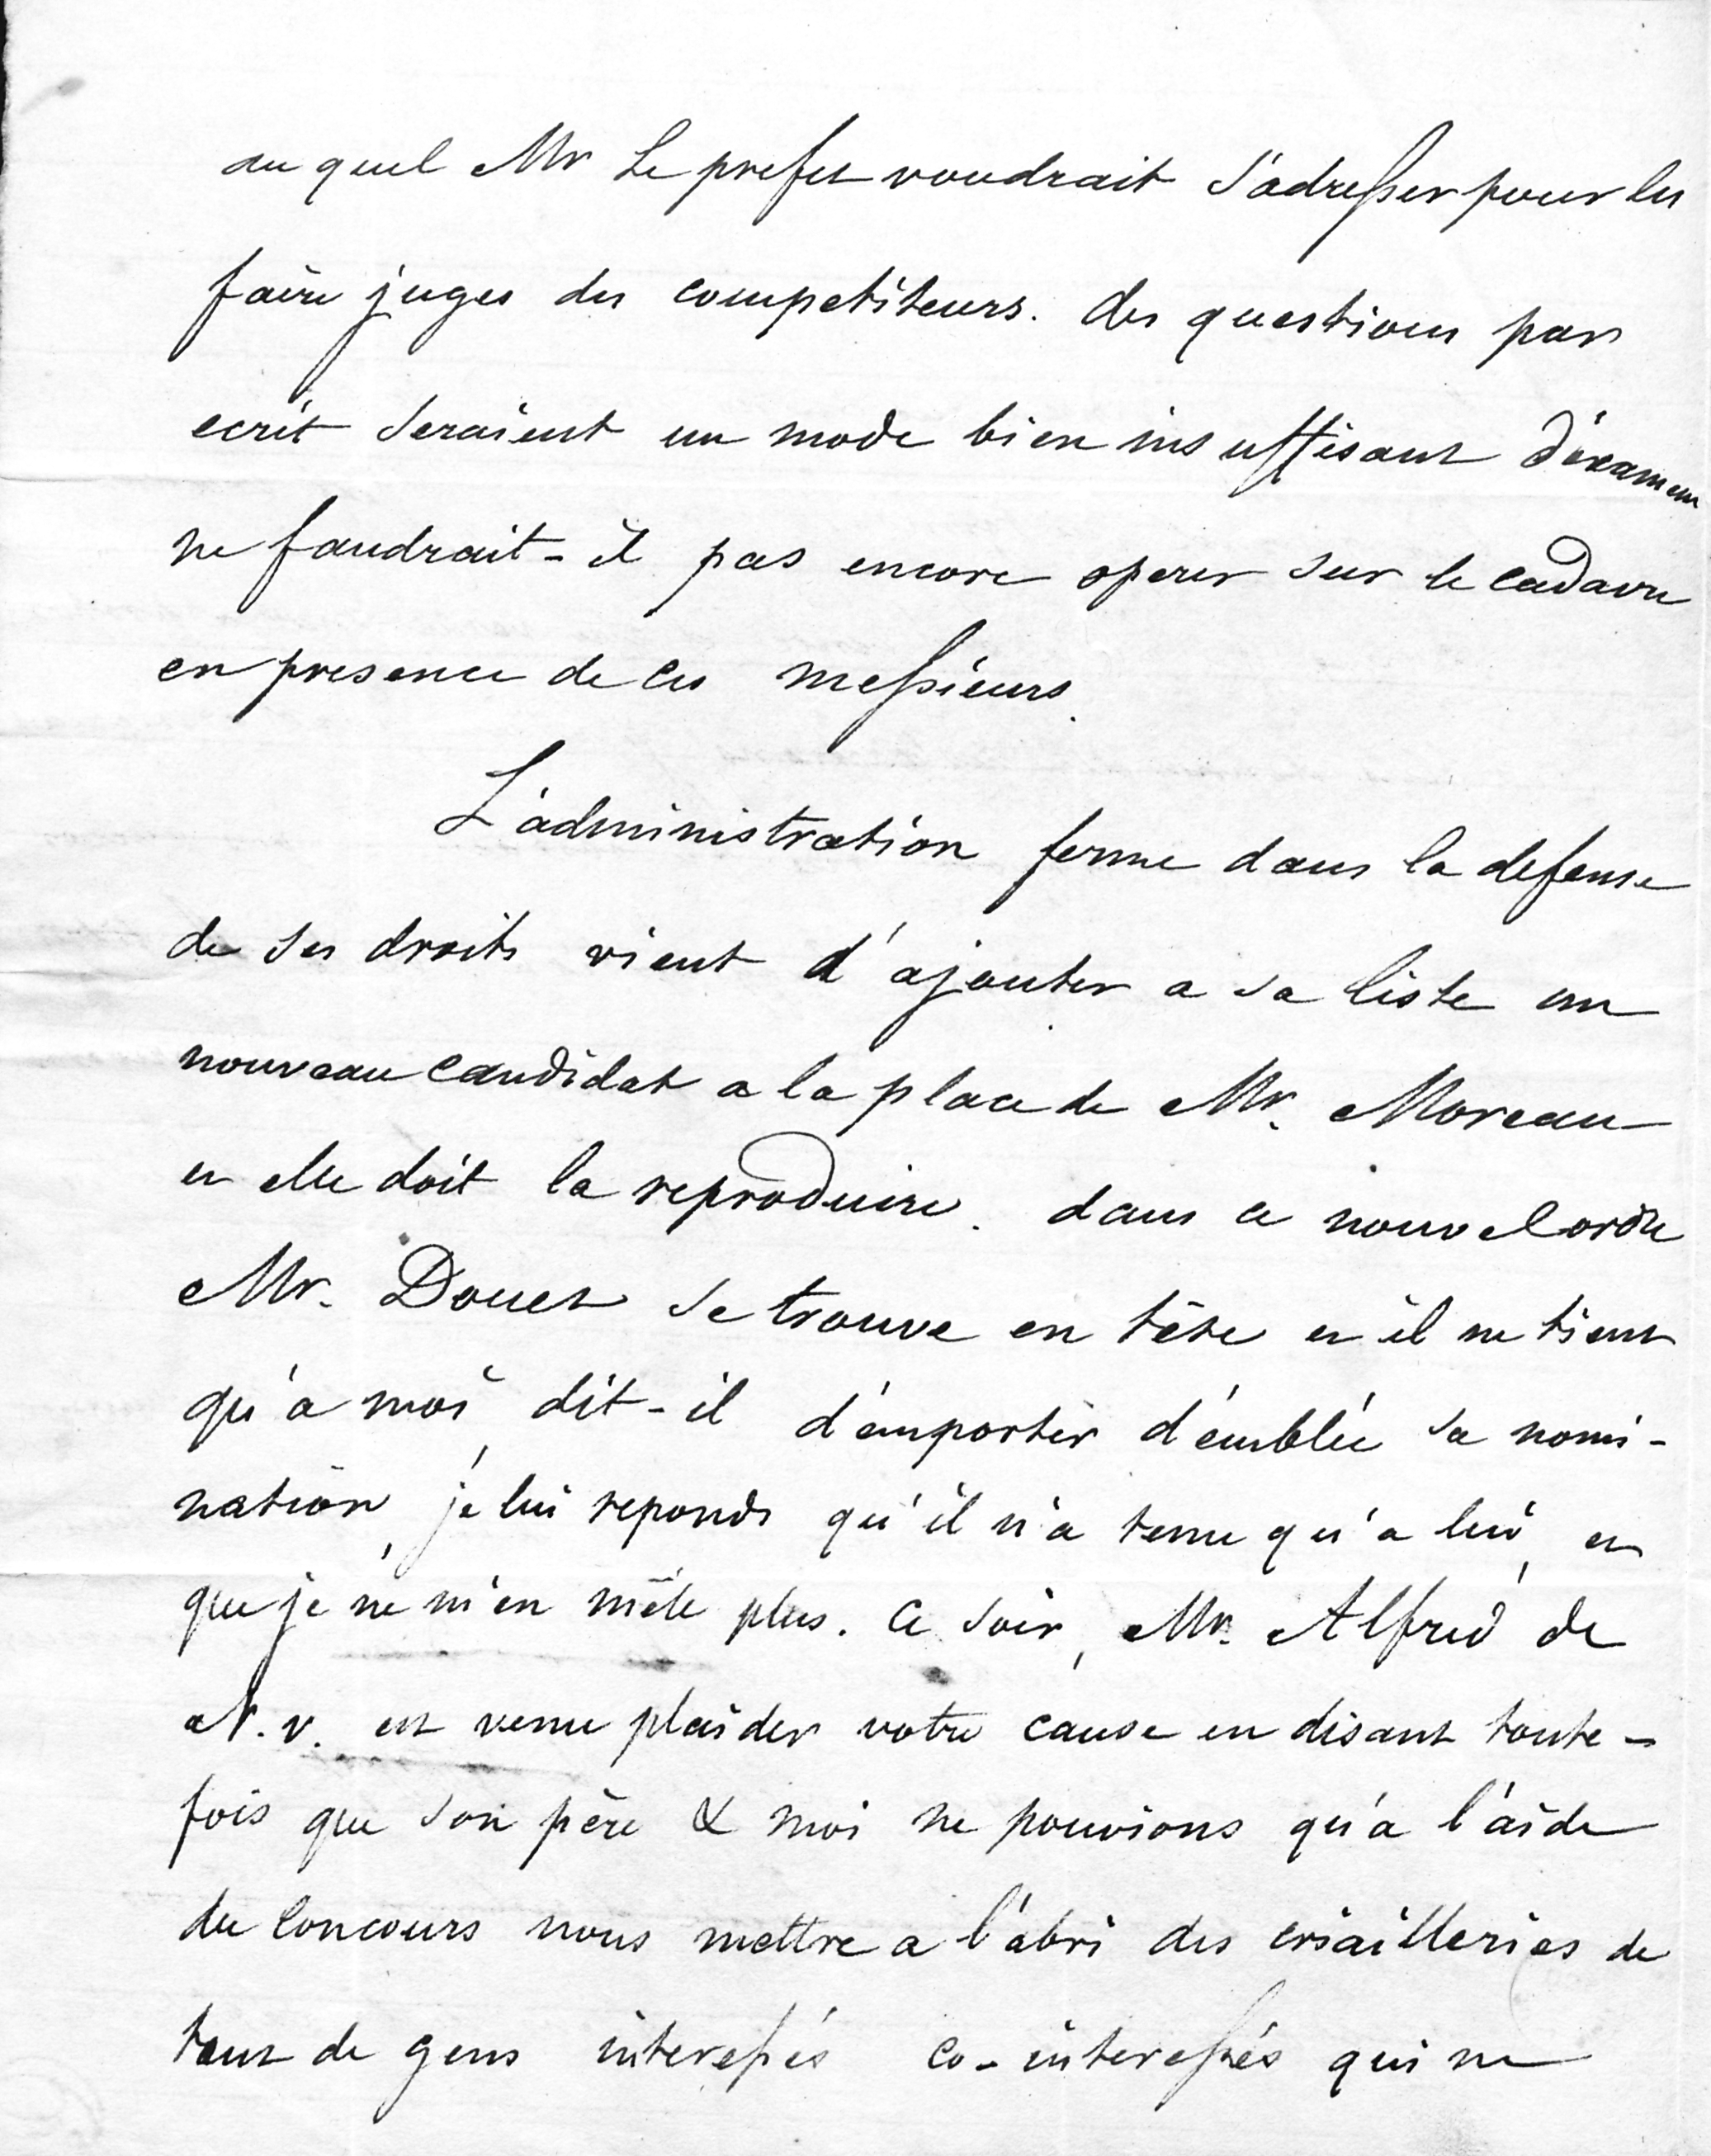 au quel Mr Le prefet voudrait s'adresser pour les
faire juges des competiteurs. des questions par
ecrit seraient un mode bien insuffisant d'examen
ne faudrait-il pas encore operer sur le cadavre
en presence de ces messieurs.
L'administration ferme dans la defense
de ses droits vient d'ajouter a sa liste un
nouveau candidat a la place de Mr. Moreau
et elle doit la reproduire. dans ce nouvel ordre
Mr. Douet se trouve en tête et il ne tient
qu'a moi dit-il d'emporter d'emblée sa nomi-
nation, je lui reponds qu'il n'a tenu qu'a lui, et
que je ne m'en mêle plus. Ce soir, Mr. Alfred de
N. v. est venu plaider votre cause en disant toute-
fois que son père & moi ne pouvions qu'a l'aide
du Concours nous mettre a l'abri des criailleries de
tant de gens interessés co-interessés qui ne